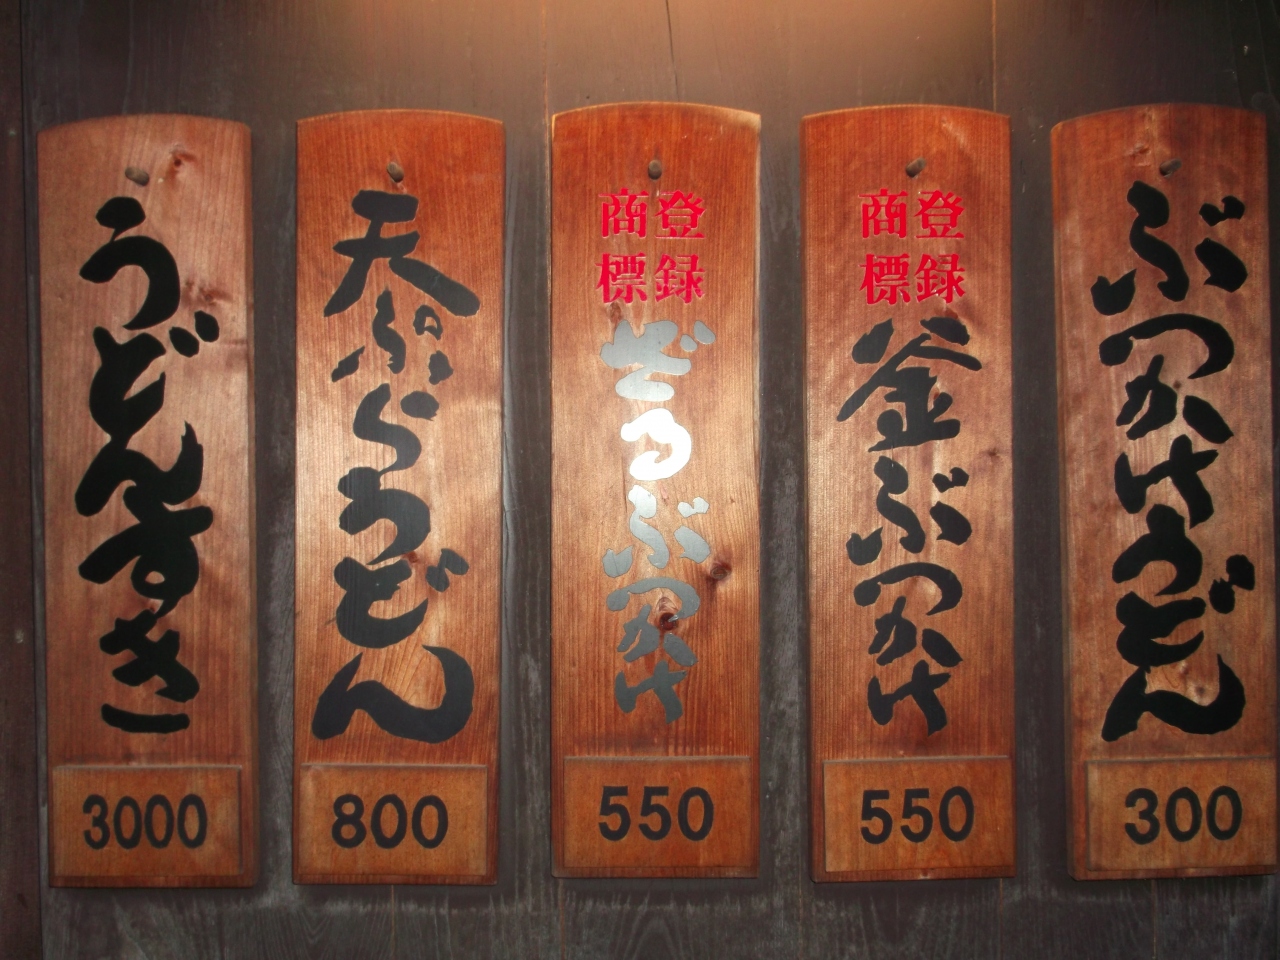 ぶっかけうどん
300
登録
商標
釜ぶっかけ
550
登録
商標
ざるぶっかけ
550
天ぷらうどん
800
うどんすき
3000